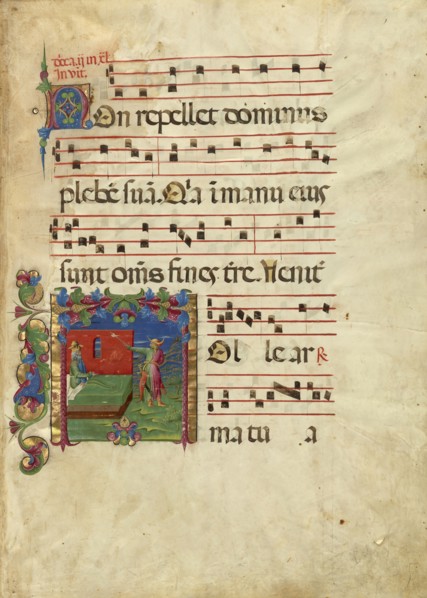 dñca. ij in xl.
Invit.
NOn repellet dominus
plebē suā. Qa ī manu eius
sunt om̄s fines tre. Venite
TOl le ar ℟
ma tu a